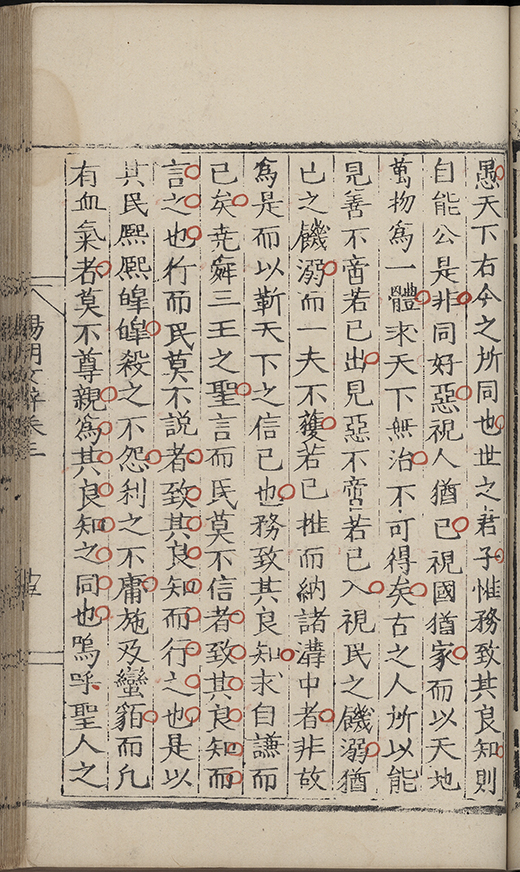 愚天下右今之所同也世之君子惟務致其良知則
自能公是非同好惡視人猶已視國猶家而以天地
萬物爲一體求天下無治不可得矣古之人所以能
見善不啻若已出見惡不啻若已入視民之饑溺猶
已之饑溺而一夫不獲若已推而納諸溝中者非故
爲是而以靳天下之信已也務致其良知求自謙而
已矣堯舜三王之聖言而民莫不信者致其良知而
言之也行而民莫不說者致其良知而行之也是以
其民熙熙皥皥殺之不怨利之不庸施及蠻貊而凡
有血氣者莫不尊親爲其良知之同也嗚呼聖人之
陽明文粹卷三